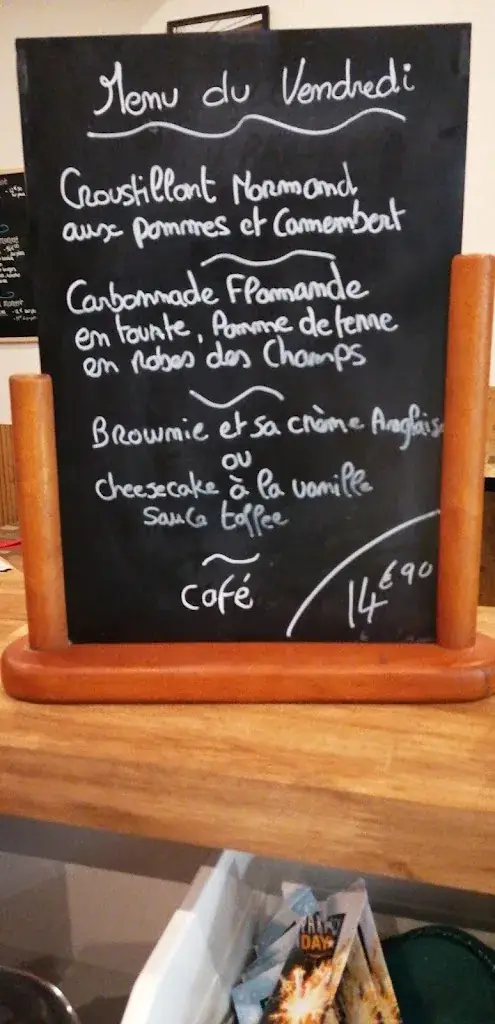 Menu du Vendredi
Croustillant Normand
aux pommes et Camembert
Carbonnade Flamande
en tourte, Pomme de terre
en Robes des Champs
Brownie et sa crème Anglaise
ou
cheesecake à la vanille
sauce toffee
café
14€90
DAY